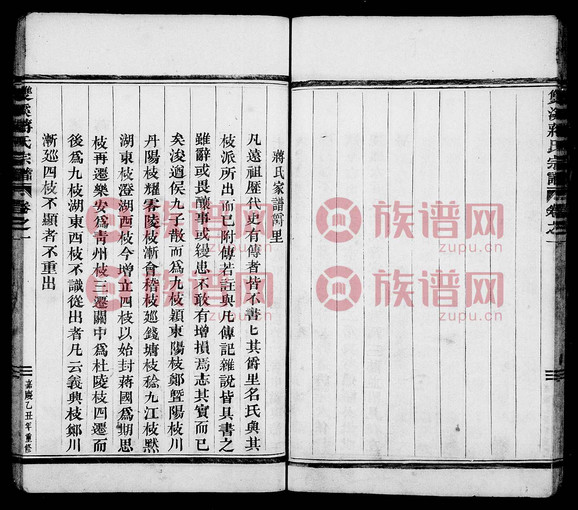 雙溪蔣氏宗譜 卷之一
蔣氏家譜爵里
凡遠祖歷代史有傳者皆不書匕其爵里名氏與其
枝派所出而已附傳若註與凡傳記雜說皆具書之
雖辭或畏釀事或謾患不敢有增損焉志其實而已
矣浚遒侯九子散而為九枝穎東陽枝鄮暨陽枝川
丹陽枝耀零陵枝漸會稽枝廵錢塘枝稔九江枝默
湖東枝澄湖西枝今增立四枝以始封蔣國為期思
枝再遷樂安為青州枝三遷關中為杜陵枝四遷而
後為九枝湖東西枝不識從出者凡云義興枝鄮川
漸廵四枝不顯者不重出
雙溪蔣氏宗譜 卷之一
嘉慶乙丑年重修
族谱网
zupu.cn
族谱网
zupu.cn
族谱网
zupu.cn
族谱网
zupu.cn